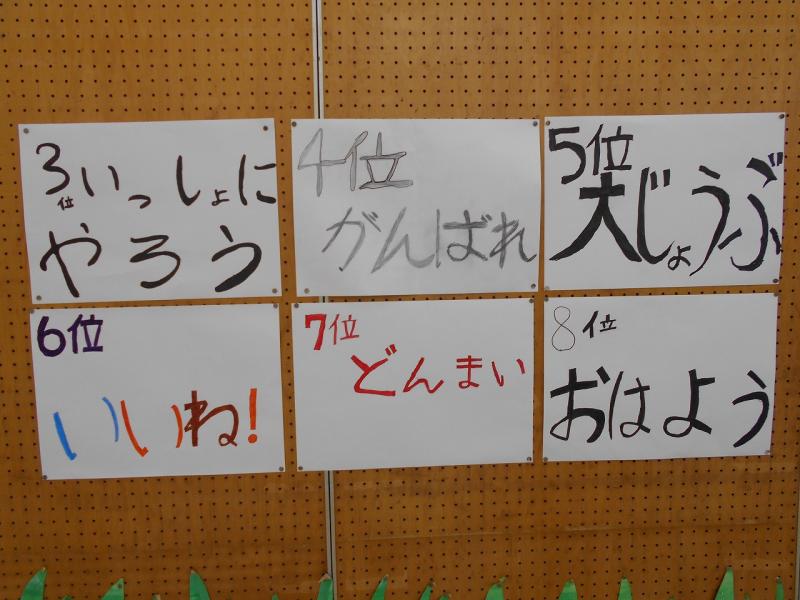 3位 いっしょに
やろう
4位
がんばれ
5位
大じょうぶ
6位
いいね!
7位
どんまい
8位
おはよう